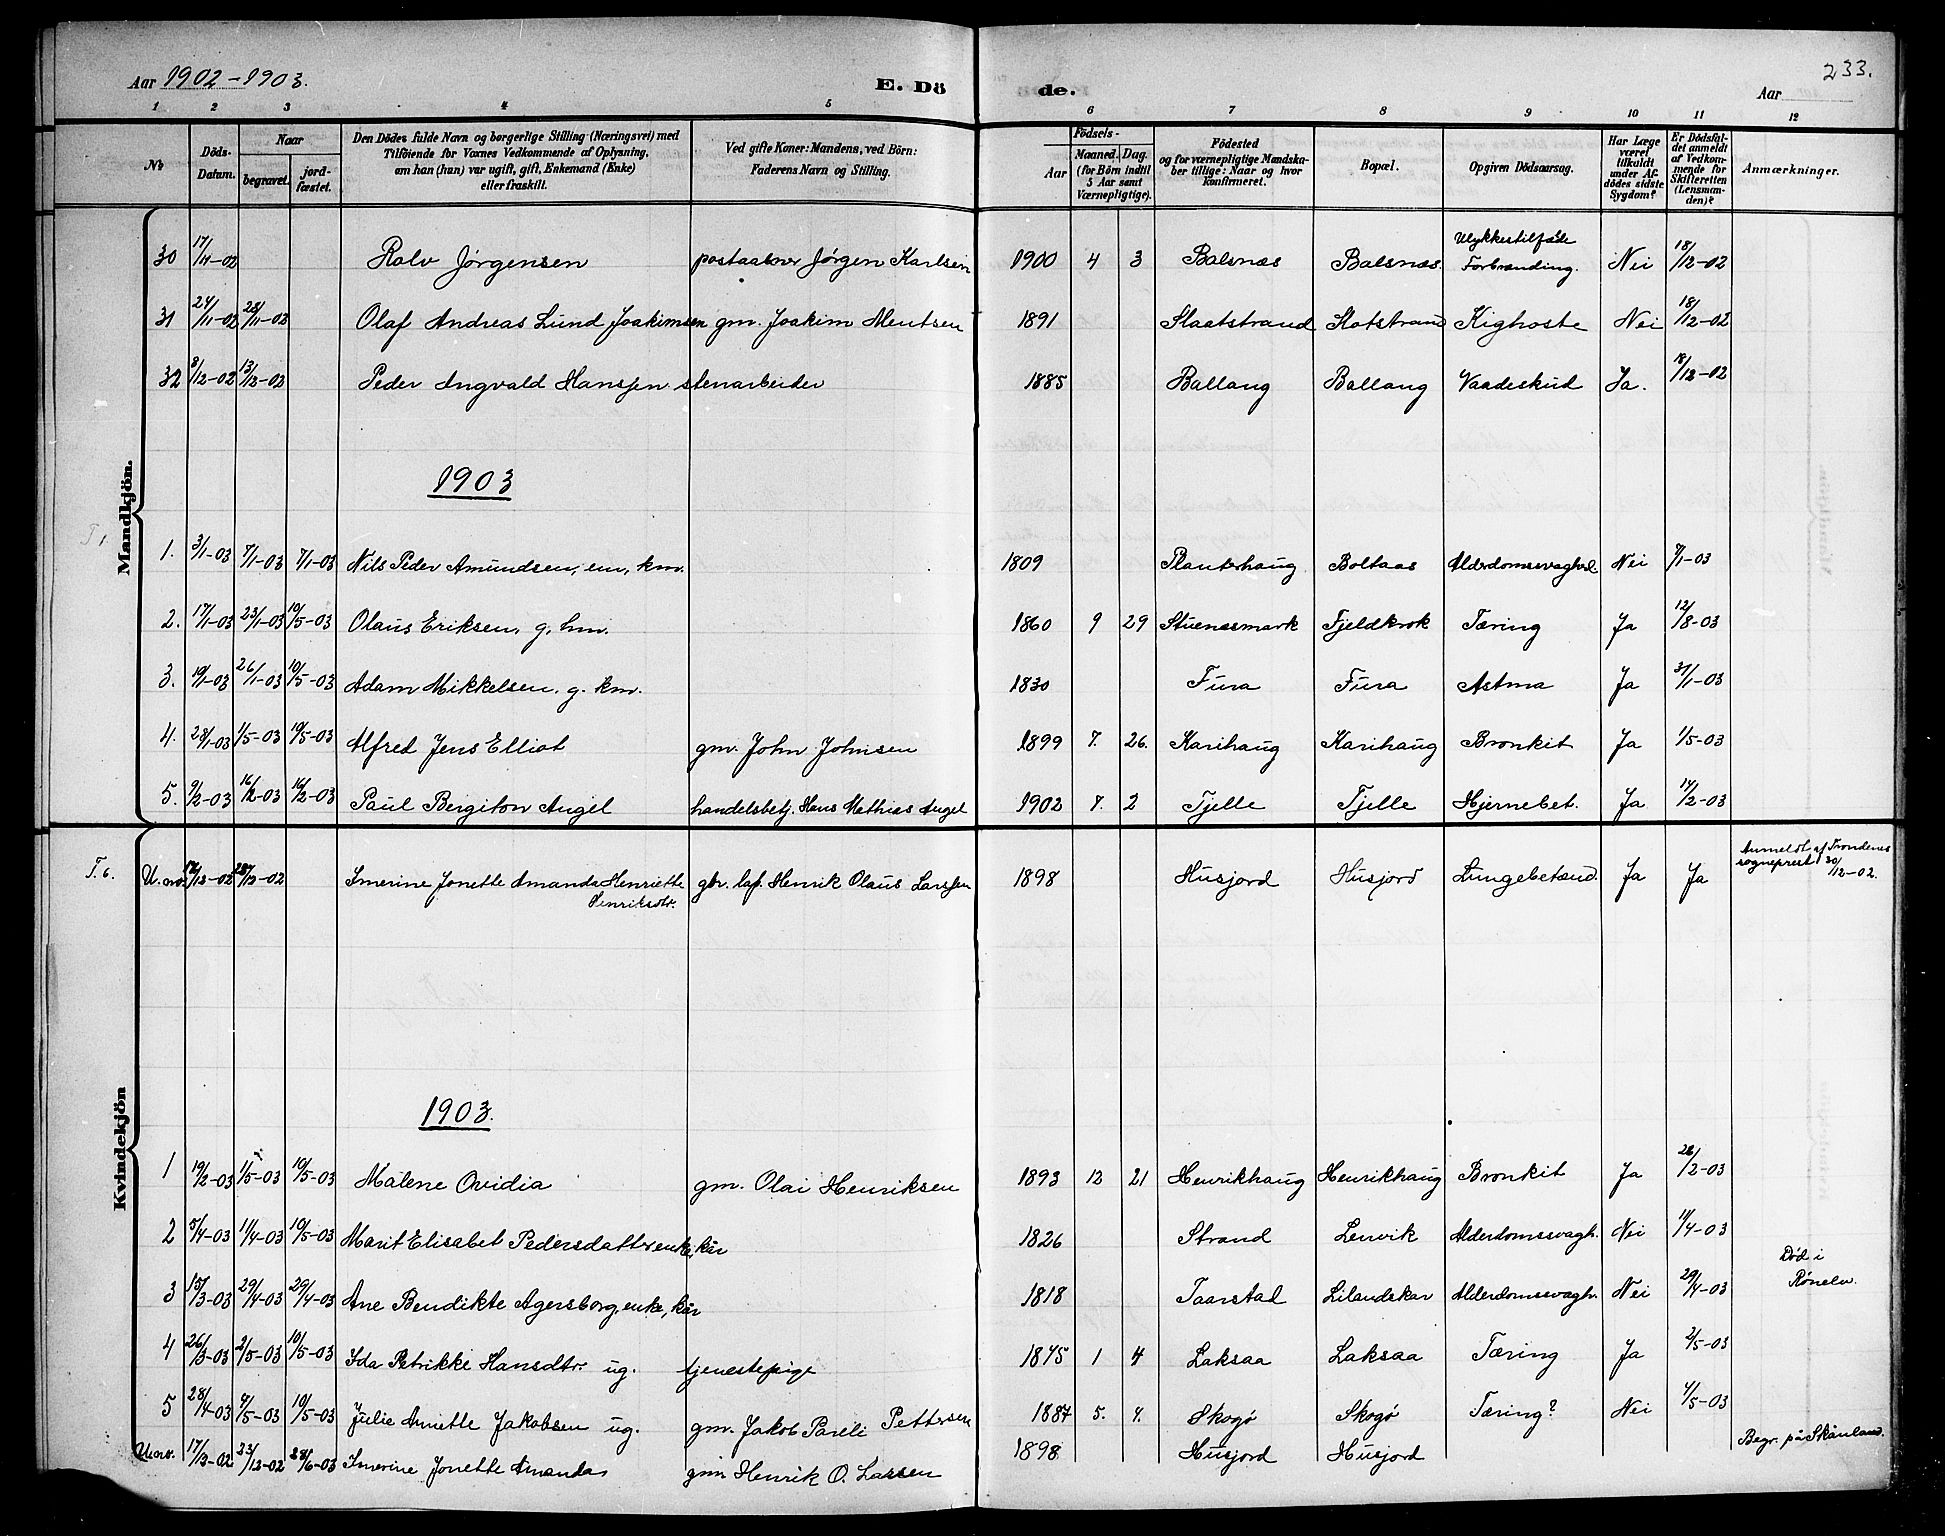 Aar 1902-1903.
E. Dö
de.
Aar
233.
1 2 3 4 5 6 7 8 9 10 11 12
№
Döds-Datum.
Naar
begravet.
jord-fæstet.
Den Dödes fulde Navn og borgerlige Stilling (Næringsvei) med
Tilföiende for Voxnes Vedkommende af Oplysning,
om han (hun) var ugift, gift, Enkemand (Enke)
eller fraskilt.
Ved gifte Koner: Mandens, ved Börn:
Faderens Navn og Stilling.
Födsels-
Aar
Maaned. Dag.
(for Börn indtil
5 Aar samt
Værnepligtige).
Födested
og for værnepligtige Mandska-
ber tillige: Naar og hvor
konfirmeret.
Bopæl.
Opgiven Dödsaarsag.
Har Læge
været
tilkaldt
under Af-
dödes sidste
Sygdom?
Er Dödsfal-
det anmeldt
af Vedkom-
mende for
Skifteretten
(Lensman-
den)?
Anmærkninger.
Mandkjön.
30 17/11-02 Ralv Jørgensen postaabner Jørgen Karlsen 1900 4 3 Balsnæs Balsnæs. Ulykkestilfælde Forbrænding. Nei 18/12-02
31 24/11-02 28/11-02 Olaf Andreas Lund Joakimsen gm. Joakim Mentsen 1891 Slaatstrand Slotstrand Kighoste Nei 18/12-02
32 8/12-02 13/12-02 Peder Ingvald Hansen stenarbeider 1885 Ballang Ballang Vaadeskud Ja. 18/12-02
1903
T 1
1. 3/1-03 7/1-03 7/1-03 Nils Peder Amundsen, em, km. 1809 Planterhaug Boltaas Alderdomssvaghed Nei 7/1-03
2. 17/1-03 23/1-03 10/5-03 Olaus Eriksen, g. hm. 1860 9 29 Stuenesmark Fjeldkrok Tæring Ja 12/8-03
3. 19/1-03 26/1-03 10/5-03 Adam Mikkelsen, g. km. 1830 Fura Fura Astma Ja 31/1-03
4. 28/1-03 1/5-03 10/5-03 Alfred Jens Elliot gm. John Johnsen 1899 7. 26. Karihaug Karihaug Bronkit Ja 1/5-03
5. 9/2-03 16/2-03 16/2-03 Paul Bergiton Angel handelsbetj. Hans Mathias Angel 1902 7. 2 Tjelle Tjelle Hjernebet. Ja 14/2-03
Kvindekjön
T. 6.
U. no. 17/12-02 23/12-02 Imerine Jonette Amanda Henriette Henriksdtr. gbr. laf. Henrik Olaus Larsen 1898 Husjord Husjord Lungebetænd. Ja Ja Anmeldt af Trondenes sogneprest 30/12-02.
1903.
1 19/2-03 1/5-03 10/5-03 Målene Ovidia gm. Olai Henriksen 1893 12 21 Henrikhaug Henrikhaug Bronkit Ja 28/2-03
2 5/4-03 11/4-03 10/5-03 Marit Elisabet Pedersdatter enke, kår 1826 Strand Lenvik Alderdomssvagh. Nei 11/4-03
3 15/3-03 29/4-03 29/4-03 Ane Bendikte Agersborg, enke, kår 1818 Taarstad Lilandskar Alderdomssvagh. Nei 29/4-03 Död i Rónelv.
4 26/3-03 2/5-03 10/5-03 Ida Petrikke Hansdtr. ug. tjenestepige 1875 1 4 Laksaa Laksaa Tæring Ja 2/5-03
5 28/4-03 4/5-03 10/5-03 Julie Anette Jakobsen ug. gm. Jakob Pareli Pettersen 1887 5. 4. Skogø Skogø Tæring? Nei 4/5-03
U.nr. 17/3-02 23/12-02 28/6-03 Imerine Jonette Amanda gm Henrik O. Larsen 1898 Husjord Husjord Begr. på Skånland.